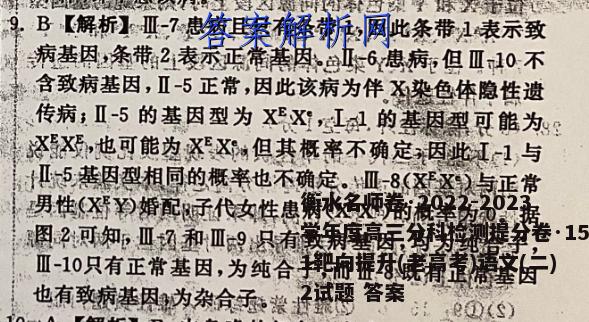 9. B【解析】Ⅲ-7 患病且只有条带 1,因此条带 1 表示致
病基因,条带 2 表示正常基因。Ⅱ-6 患病,但 Ⅲ-10 不
含致病基因,Ⅱ-5 正常,因此该病为伴 X 染色体隐性遗
传病;Ⅱ-5 的基因型为 XᴱXᵉ,Ⅰ-1 的基因型可能为
XᴱXᴱ,也可能为 XᴱXᵉ,但其概率不确定,因此 Ⅰ-1 与
Ⅱ-5 基因型相同的概率也不确定。Ⅲ-8(XᴱXᵉ)与正常
男性(XᴱY)婚配,子代女性患病(XᵉXᵉ)的概率为 0。据
图 2 可知,Ⅲ-7 和 Ⅲ-9 只有致病基因,均为纯合子,
Ⅲ-10只有正常基因,为纯合子,而 Ⅲ-8既有正常基因
也有致病基因,为杂合子。
答案解析网
衡水名师卷·2022-2023
学年度高三分科检测提分卷·15
1靶向提升(老高考)语文(二)
2试题 答案
(2)①9